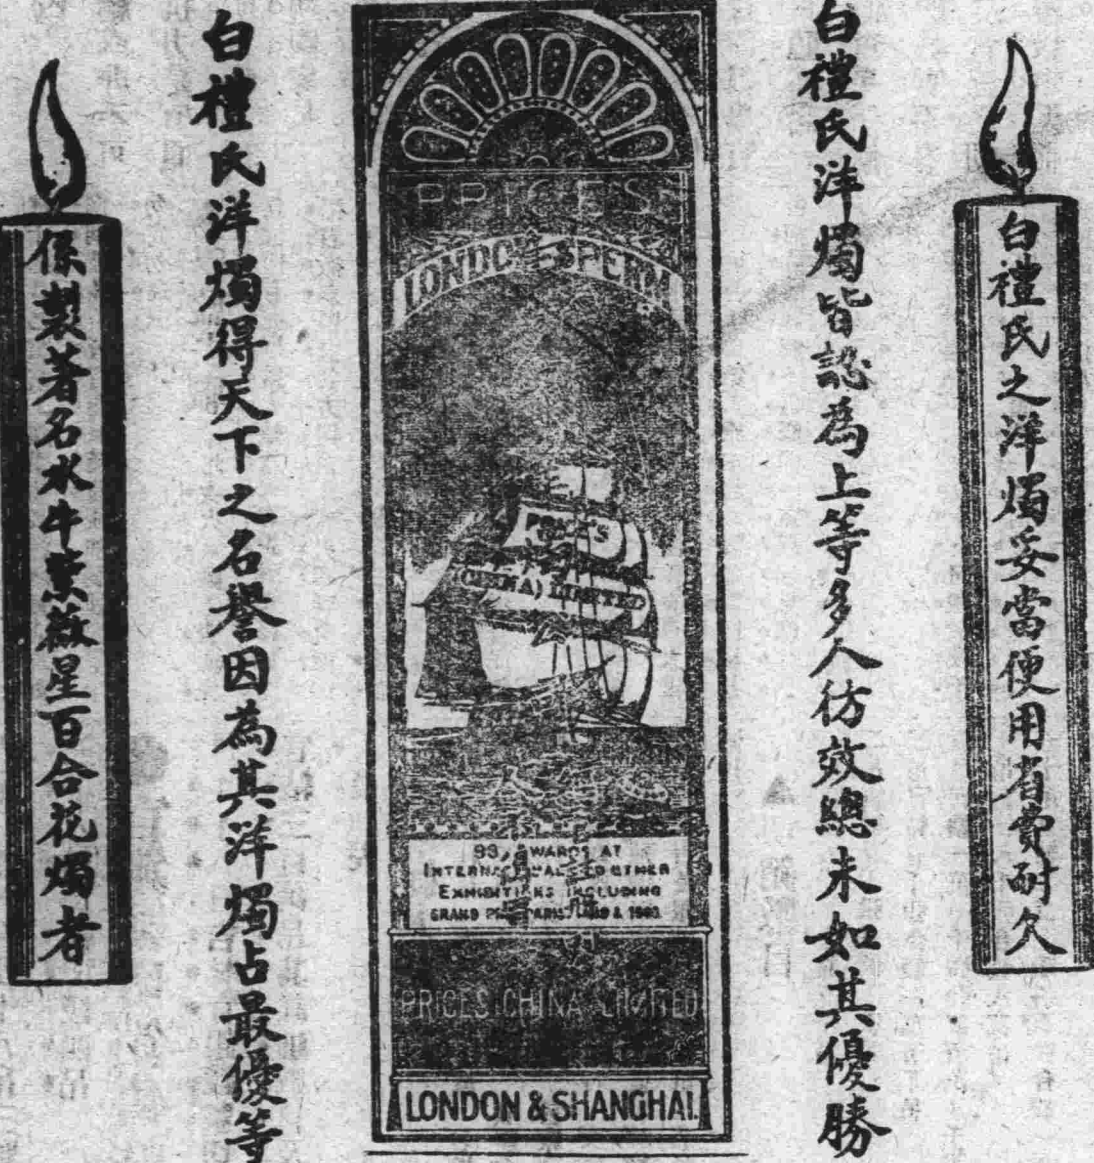 白禮氏之洋燭妥當便用省費耐久
白禮氏洋燭皆認為上等多人彷效總未如其優勝
PRICES
LONDON SPERM
PRICE'S
(CHINA) LIMITED
93 AWARDS AT
INTERNATIONAL & OTHER
EXHIBITIONS INCLUDING
GRAND PRIX PARIS
PRICES CHINA LIMITED
LONDON & SHANGHAI.
白禮氏洋燭得天下之名譽因為其洋燭占最優等
係製著名水牛紫薇星百合花燭者